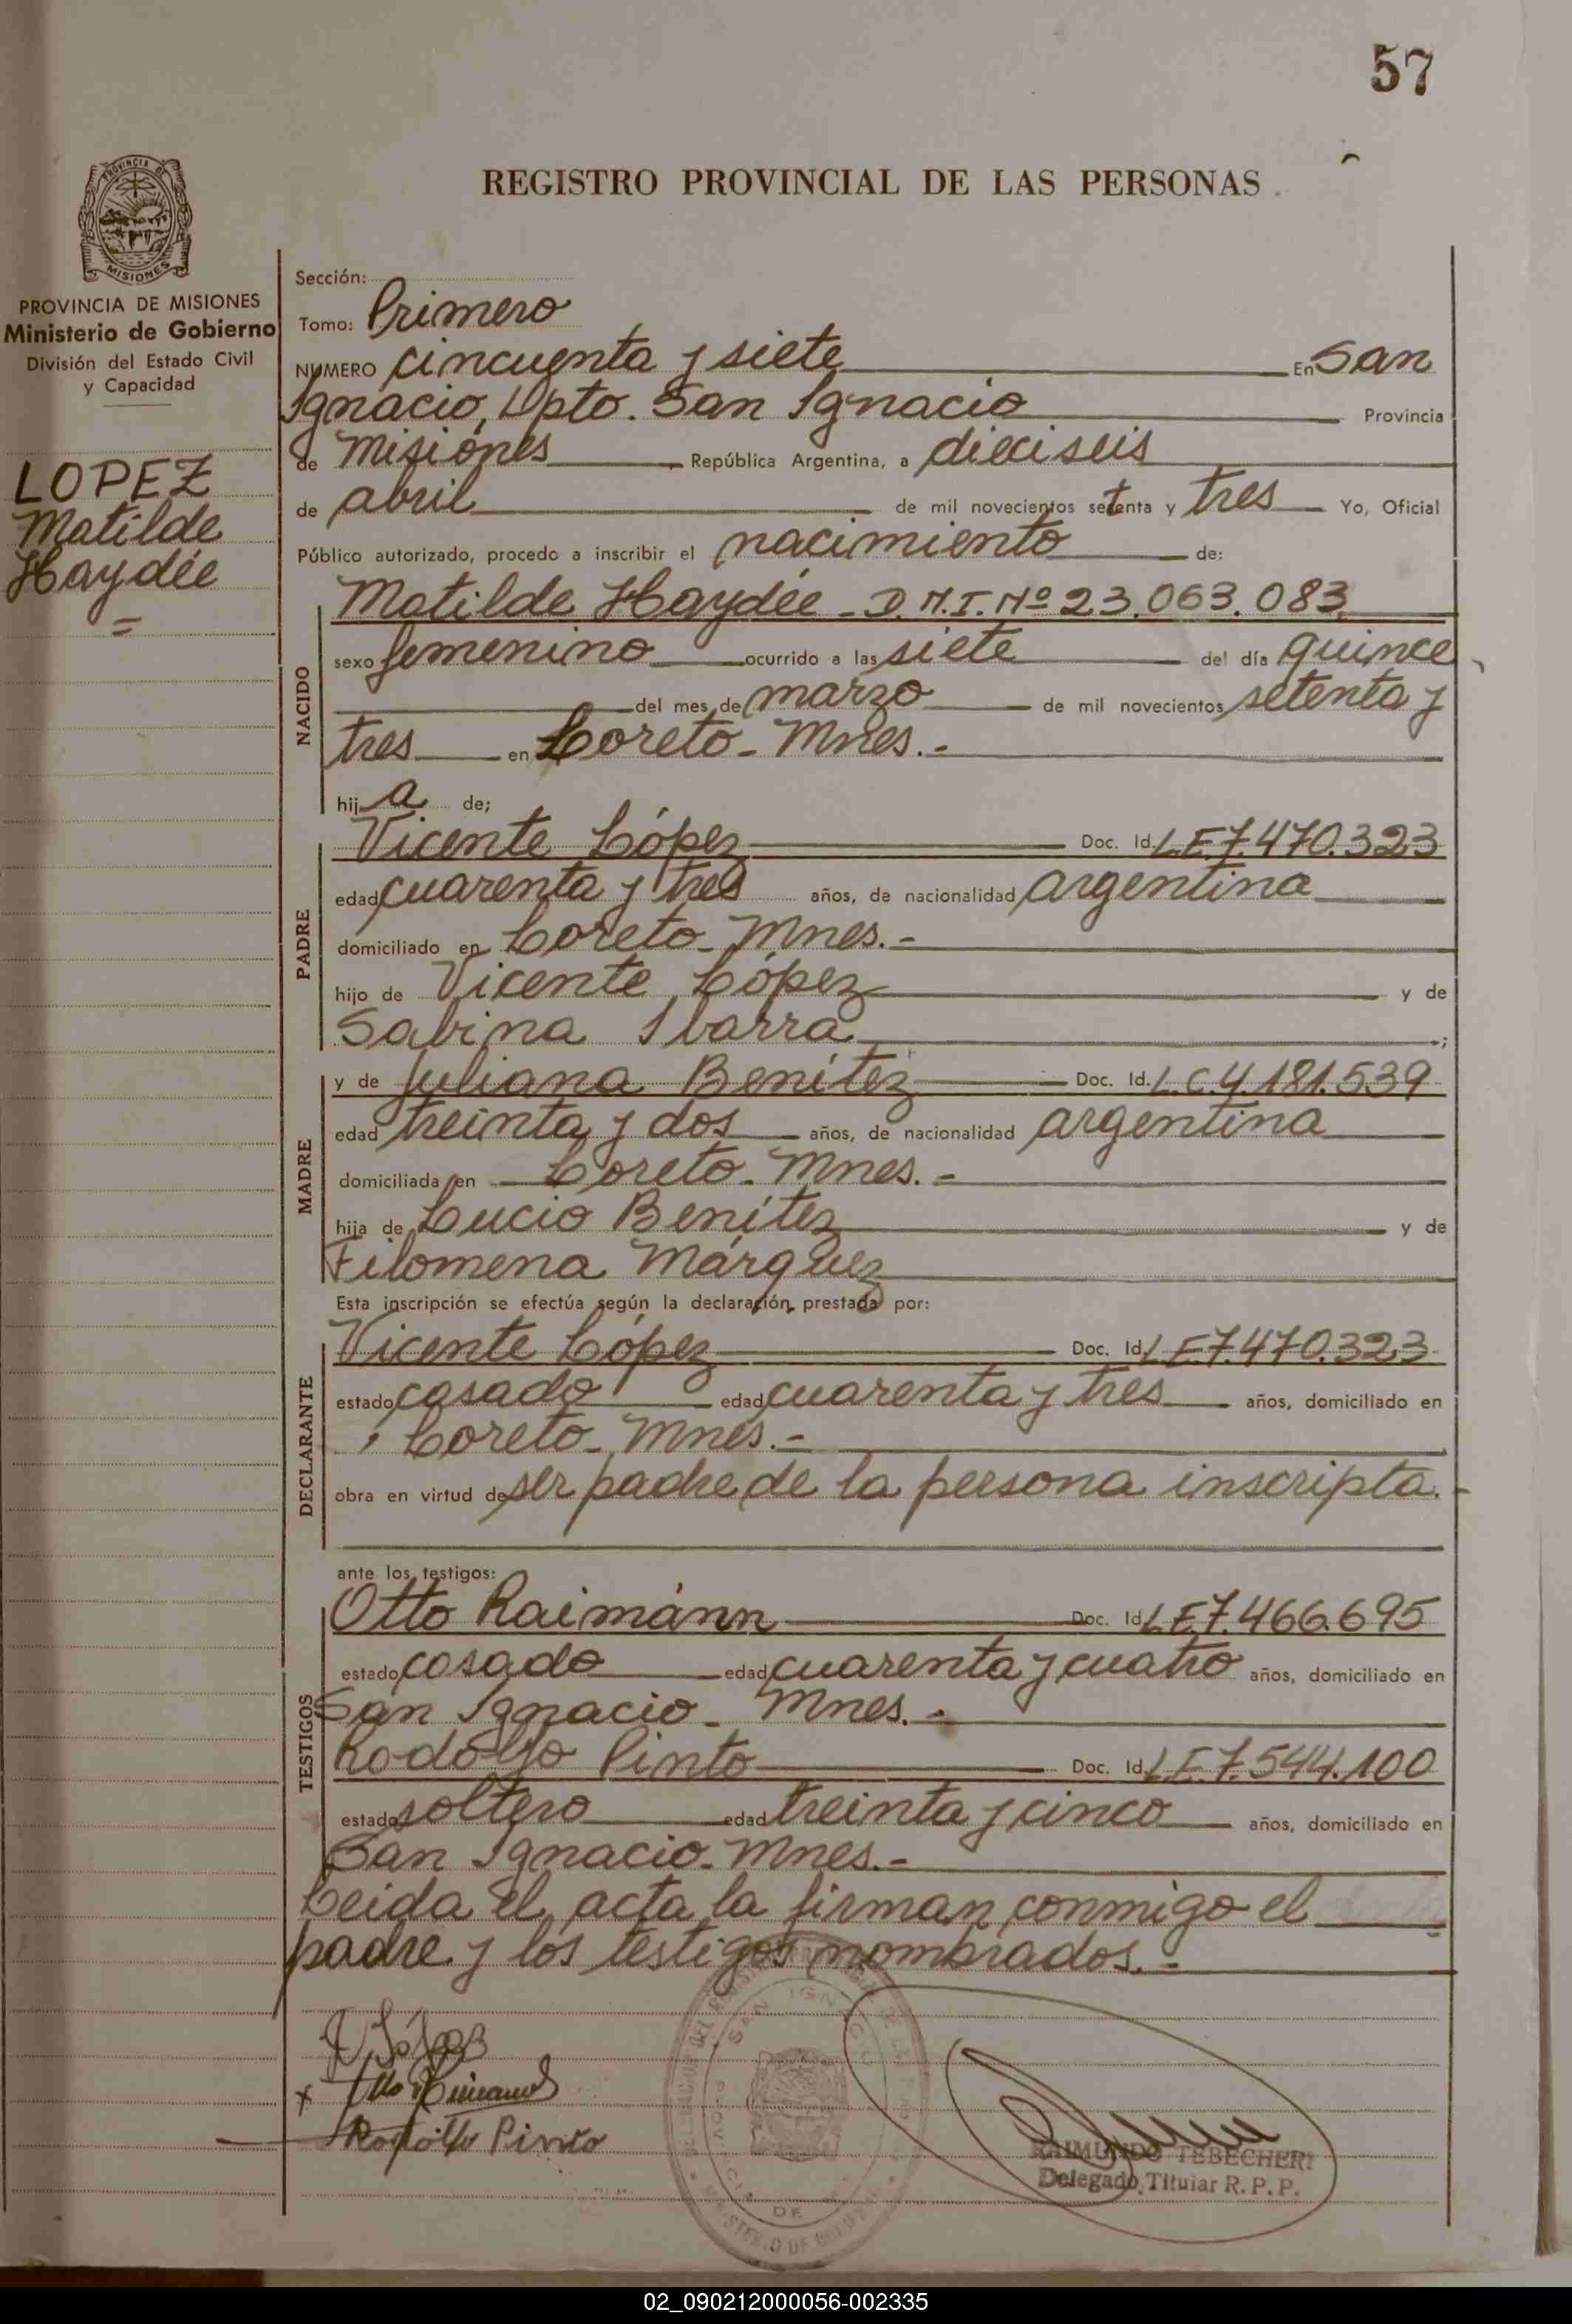 57
REGISTRO PROVINCIAL DE LAS PERSONAS
PROVINCIA DE
MISIONES
PROVINCIA DE MISIONES
Ministerio de Gobierno
División del Estado Civil
y Capacidad
LOPEZ
Matilde
Haydée
=
Sección:
Tomo: Primero
NUMERO cincuenta y siete En San
Ignacio, Dpto. San Ignacio Provincia
de Misiónes República Argentina, a dieciseis
de abril de mil novecientos setenta y tres Yo, Oficial
Público autorizado, procedo a inscribir el nacimiento de:
NACIDO
Matilde Haydée - D.N.I. Nº 23.063.083
sexo femenino ocurrido a las siete del día quince
del mes de marzo de mil novecientos setenta y
tres en Loreto - Mnes.-
hija de;
PADRE
Vicente López Doc. Id. L.E.7.470.323
edad cuarenta y tres años, de nacionalidad argentina
domiciliado en Loreto - Mnes.-
hijo de Vicente López y de
Sabina Ibarra ;
MADRE
y de Juliana Benítez Doc. Id. L.C.4.181.539
edad treinta y dos años, de nacionalidad argentina
domiciliada en Loreto - Mnes.-
hija de Lucio Benítez y de
Filomena Márquez
Esta inscripción se efectúa según la declaración prestada por:
DECLARANTE
Vicente López Doc. Id. L.E.7.470.323
estado casado edad cuarenta y tres años, domiciliado en
Loreto - Mnes.-
obra en virtud de ser padre de la persona inscripta.-
ante los testigos:
TESTIGOS
Otto Raimánn Doc. Id. L.E.7.466.695
estado casado edad cuarenta y cuatro años, domiciliado en
San Ignacio - Mnes.-
Rodolfo Pinto Doc. Id. L.E.7.544.100
estado soltero edad treinta y cinco años, domiciliado en
San Ignacio - Mnes.-
Leida el acta la firman conmigo el
padre y los testigos nombrados.-
V López
Rodolfo Pinto
SAN IGNACIO
MINISTERIO DE GOBIERNO
RAIMUNDO TEBECHERI
Delegado Titular R. P. P.
02_090212000056-002335